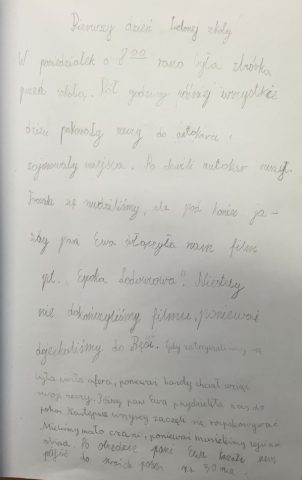 Pierwszy dzień Zielonej szkoły
W poniedziałek o 8 00 rano była zbiórka
przed szkołą. Pół godziny później wszystkie
dzieci pakowały rzeczy do autokaru i
zajmowały miejsca. Po chwili autokar ruszył.
Trochę się nudziliśmy, ale pod koniec ja-
zdy pani Ewa włączyła nam film
pt. „Epoka Lodowcowa". Niestety
nie dokończyliśmy filmu, ponieważ
dojechaliśmy do Gdy zatrzymaliśmy się
była mała afera, ponieważ każdy chciał wziąć
swoje rzeczy. Później pani Ewa przydzieliła nas do
pokoi. Następnie wszyscy zaczęli się rozpakowywać.
Mieliśmy mało czasu, ponieważ musieliśmy zejść na
obiad. Po obiedzie pani Ewa kazała nam
pójść do swoich pokoi na 30 min.